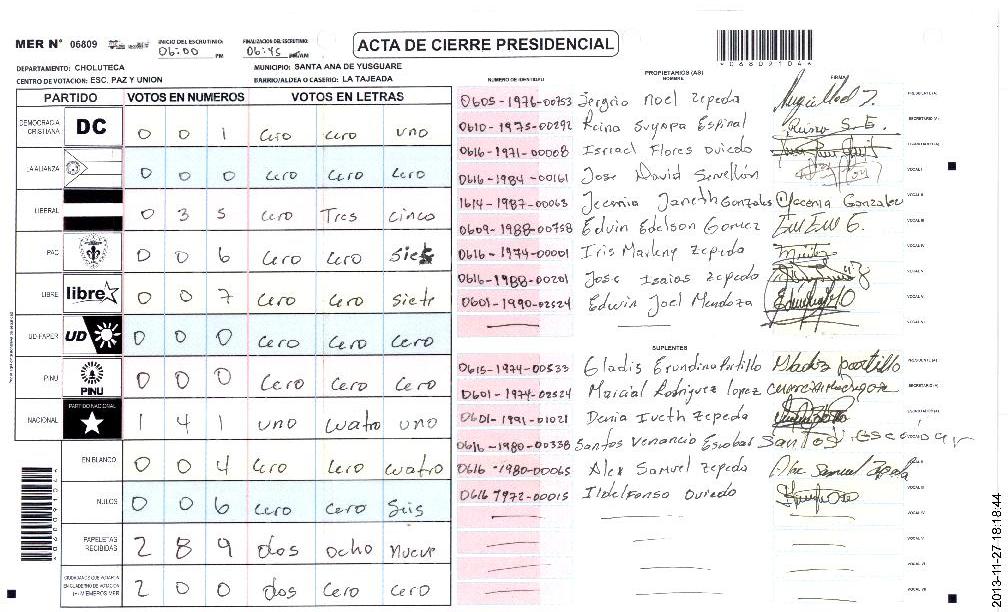 MER N° 06809 INICIO DEL ESCRUTINIO: 06:00 PM FINALIZACION DEL ESCRUTINIO: 06:45
ACTA DE CIERRE PRESIDENCIAL
DEPARTAMENTO: CHOLUTECA MUNICIPIO: SANTA ANA DE YUSGUARE
CENTRO DE VOTACION: ESC. PAZ Y UNION BARRIO/ALDEA O CASERIO: LA TAJEADA
PARTIDO VOTOS EN NUMEROS VOTOS EN LETRAS
DEMOCRACIA CRISTIANA DC 0 0 1 Cero Cero uno
LA ALIANZA 0 0 0 Cero Cero Cero
LIBERAL 0 3 5 Cero Tres cinco
PAC 0 0 6 Cero Cero
LIBRE libre 0 0 7 Cero Cero Siete
UD-FAPER UD 0 0 0 Cero Cero Cero
PINU PINU 0 0 0 Cero Cero Cero
NACIONAL PARTIDO NACIONAL 1 4 1 uno cuatro uno
EN BLANCO 0 0 4 Cero Cero cuatro
NULOS 0 0 6 Cero Cero Seis
PAPELETAS RECIBIDAS 2 8 9 dos ocho Nueve
CIUDADANOS QUE VOTARON EN CUADERNO DE VOTACION (+) MIEMBROS MER 2 0 0 dos Cero Cero
PROPIETARIOS (AS)
NUMERO DE IDENTIDAD NOMBRE FIRMA
0605-1976-00753 Sergio Noel Zepeda PRESIDENTE (A)
0610-1975-00292 Reina Suyapa Espinal Reina S. E. SECRETARIO (A)
0616-1971-00008 Isrrael Flores Oviedo ESCRUTADOR (A)
0616-1984-00161 Jose David Servellón VOCAL I
1614-1987-00063 Jecenia Janeth Gonzales Yecenia Gonzales VOCAL II
0609-1988-00758 Edvin Edelson Gomez VOCAL III
0616-1974-00001 Iris Marleny Zepeda VOCAL IV
0616-1988-00201 Jose Isaias Zepeda VOCAL V
0601-1990-02524 Edwin Joel Mendoza VOCAL VI
SUPLENTES
0615-1974-00533 Gladis Erundina Portillo Gladis portillo PRESIDENTE (A)
0601-1974-02524 Marcial Rodriguez lopez SECRETARIO (A)
0601-1991-01021 Denia Iveth Zepeda ESCRUTADOR (A)
0616-1980-00338 Santos Venancio Escobar Santos Escobar
0616-1980-00065 Alex Samuel Zepeda Alex Samuel Zepeda
0616 7972-00015 Ildelfonso Oviedo VOCAL III
VOCAL IV
VOCAL V
VOCAL VI
VOCAL VII
2013-11-27 18:18:44